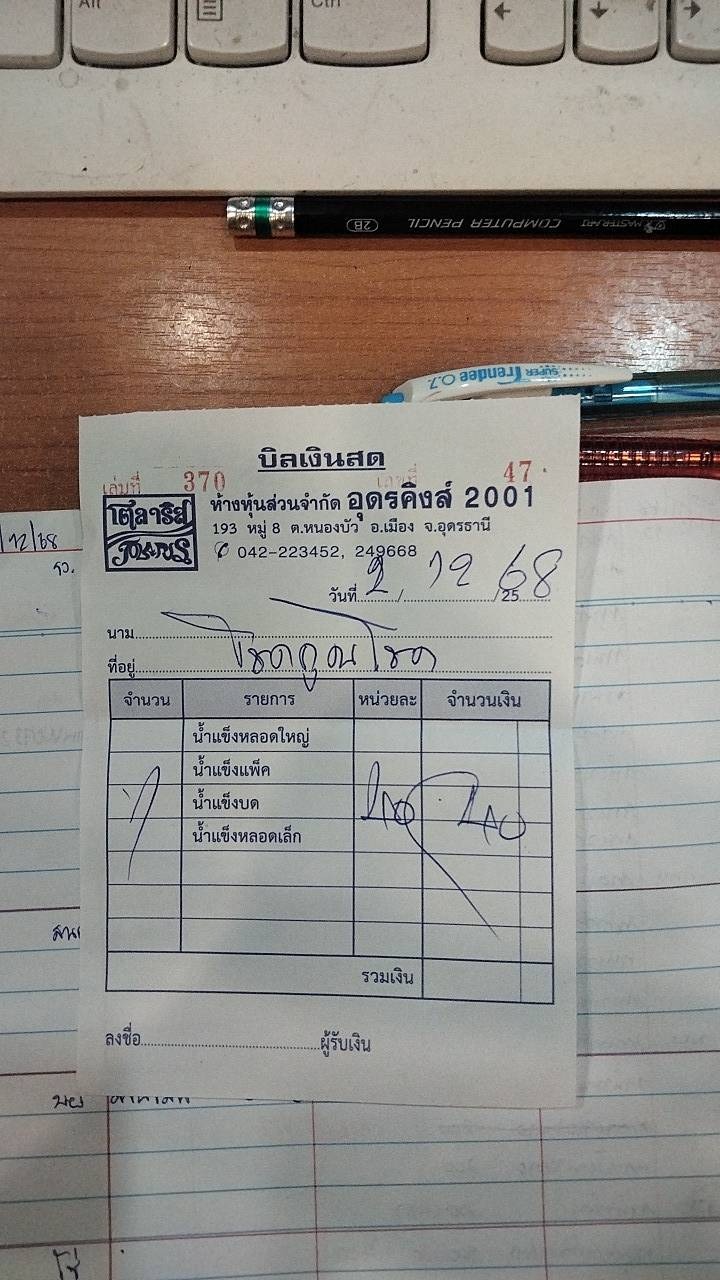 Alt
Ctrl
2B COMPUTER PENCIL MASTERART
SUPER Trendee 0.7
บิลเงินสด
เล่มที่ 370 เลขที่ 47
ห้างหุ้นส่วนจำกัด อุดรคิงส์ 2001
193 หมู่ 8 ต.หนองบัว อ.เมือง จ.อุดรธานี
042-223452, 249668
วันที่ 2 / 12 /25 68
นาม
ที่อยู่ โชคคูณโชค
จำนวน รายการ หน่วยละ จำนวนเงิน
น้ำแข็งหลอดใหญ่
น้ำแข็งแพ็ค
1 น้ำแข็งบด 40 40
น้ำแข็งหลอดเล็ก
รวมเงิน
ลงชื่อ ผู้รับเงิน
/12/68